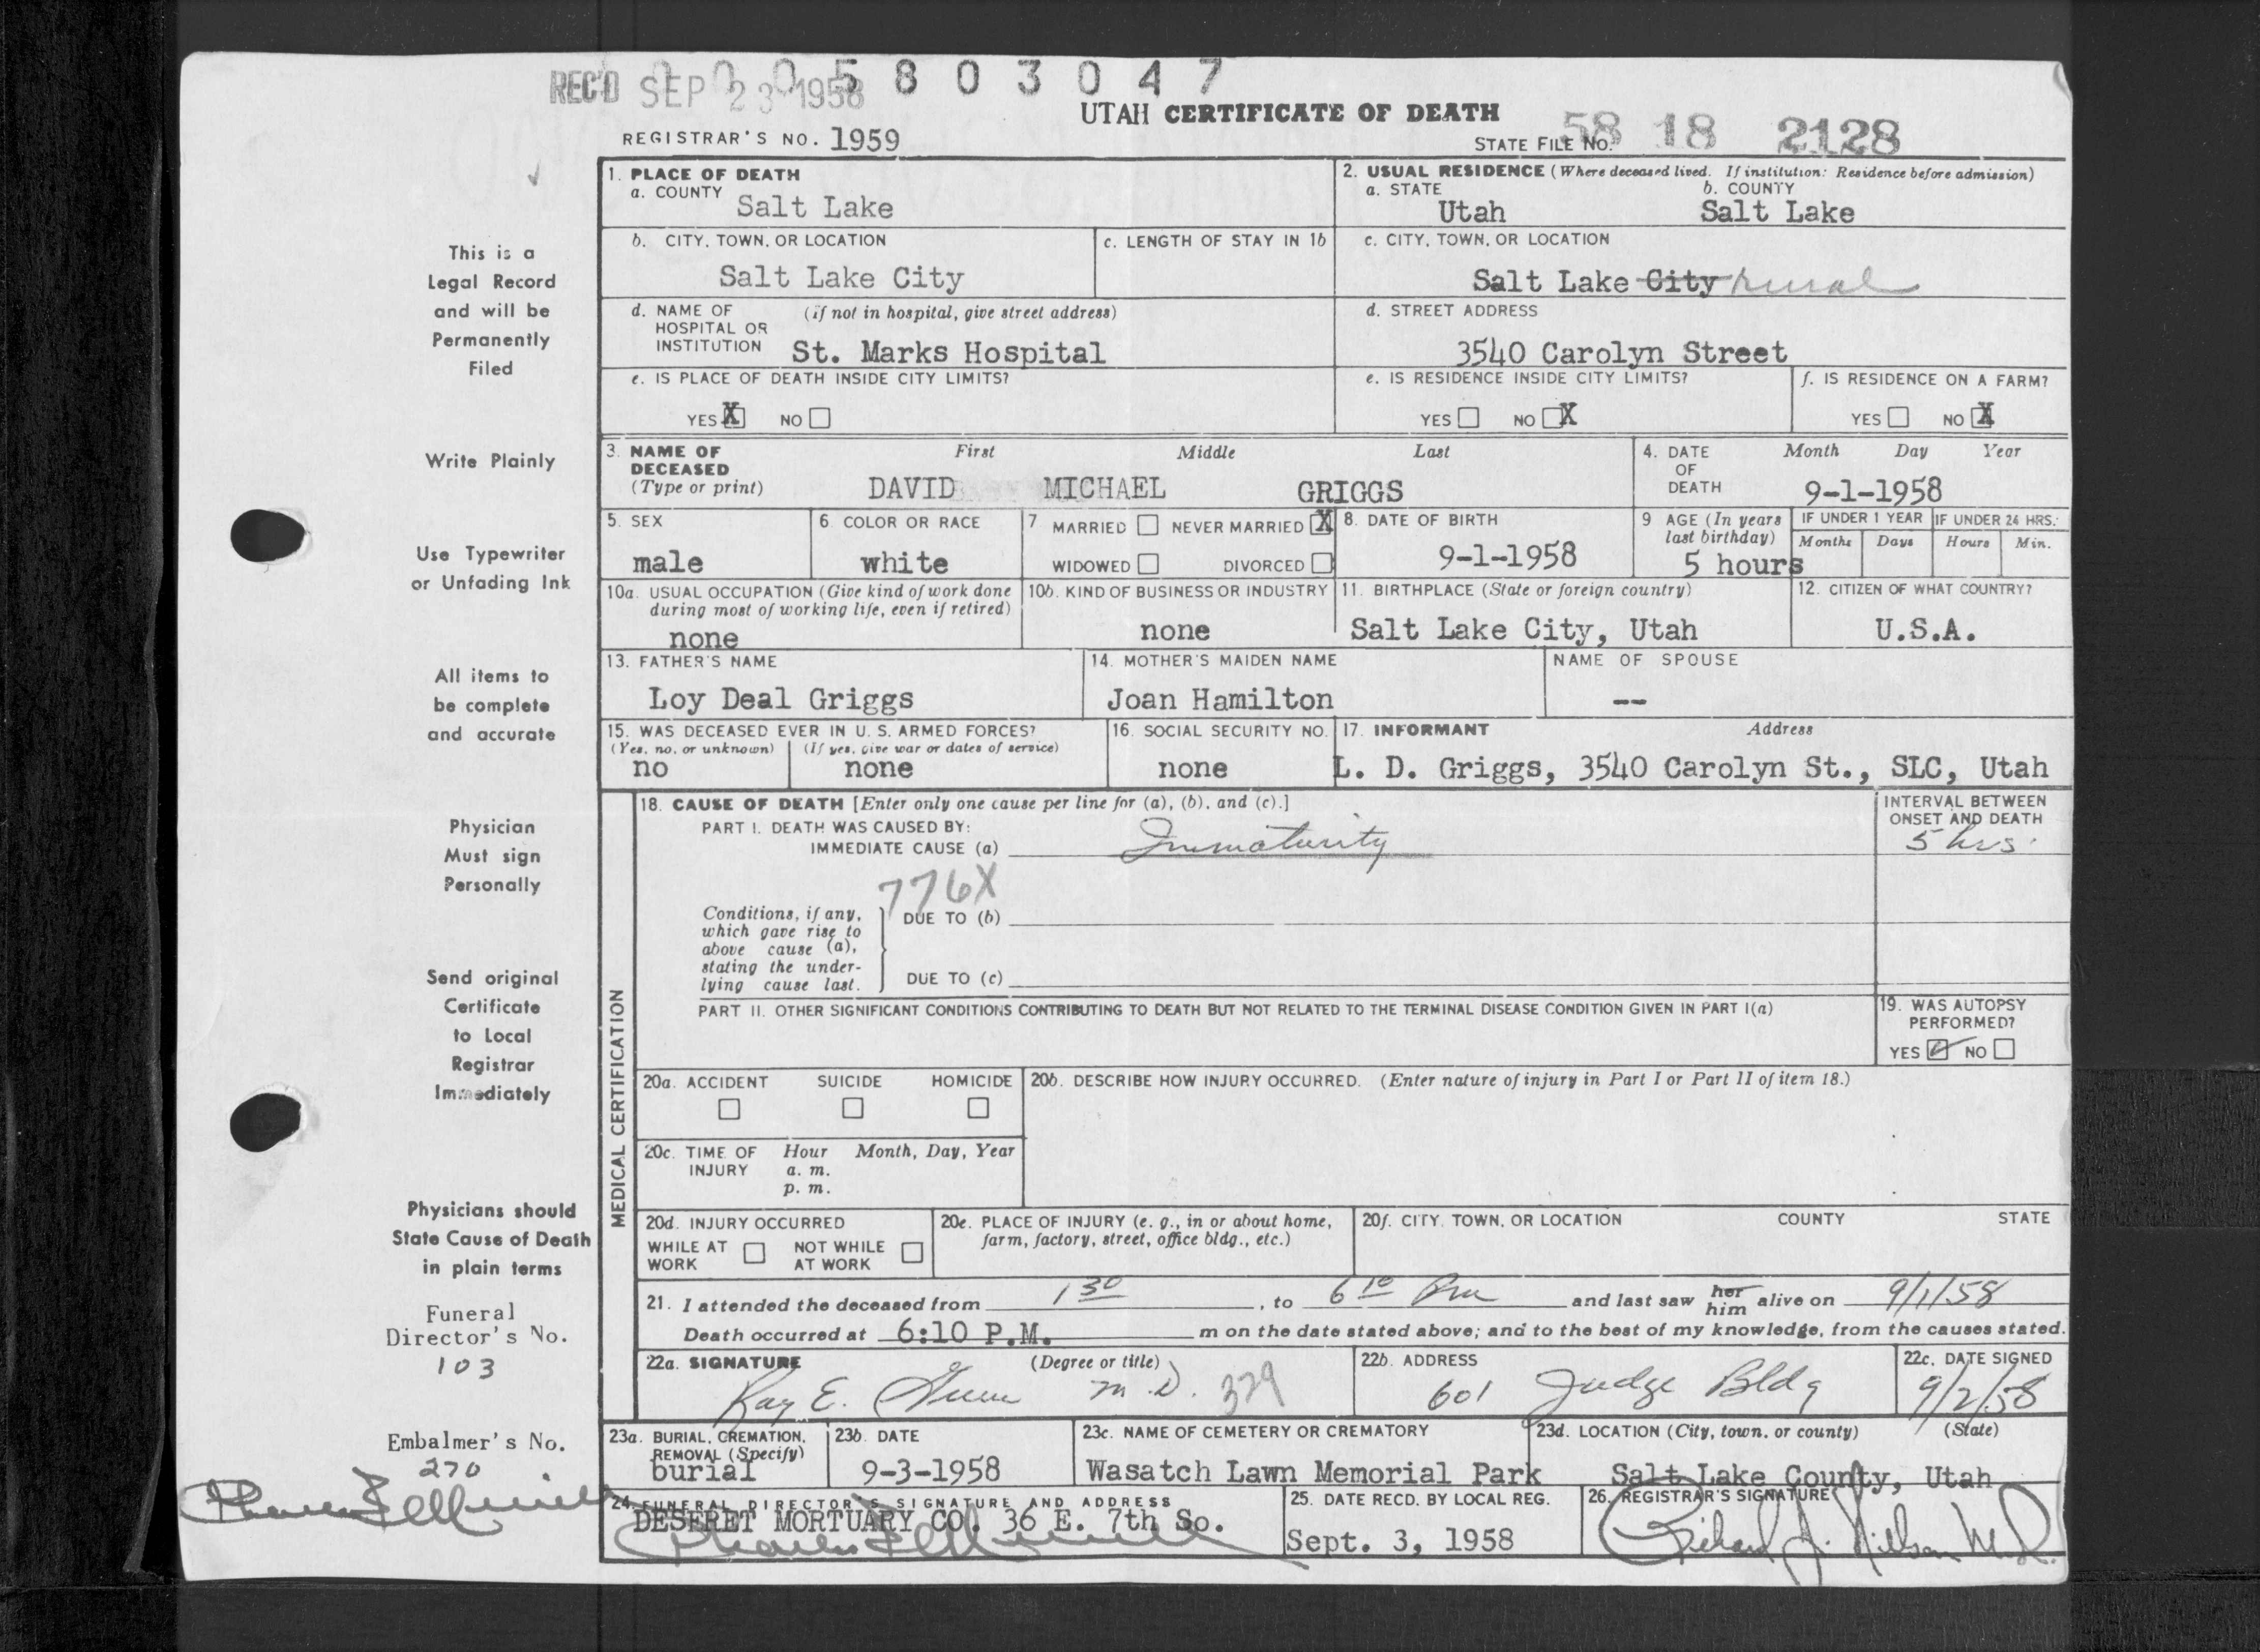 0005803047
REC'D SEP 23 1958
UTAH CERTIFICATE OF DEATH
REGISTRAR'S NO. 1959
STATE FILE NO. 58 18 2128
1. PLACE OF DEATH
a. COUNTY Salt Lake
2. USUAL RESIDENCE (Where deceased lived. If institution: Residence before admission)
a. STATE Utah b. COUNTY Salt Lake
b. CITY, TOWN, OR LOCATION Salt Lake City
c. LENGTH OF STAY IN 1b
c. CITY, TOWN, OR LOCATION Salt Lake City rural
d. NAME OF HOSPITAL OR INSTITUTION (if not in hospital, give street address) St. Marks Hospital
d. STREET ADDRESS 3540 Carolyn Street
e. IS PLACE OF DEATH INSIDE CITY LIMITS?
YES X NO
e. IS RESIDENCE INSIDE CITY LIMITS?
YES NO X
f. IS RESIDENCE ON A FARM?
YES NO X
3. NAME OF DECEASED (Type or print)
First Middle Last
DAVID MICHAEL GRIGGS
4. DATE OF DEATH Month Day Year
9-1-1958
5. SEX male
6 COLOR OR RACE white
7 MARRIED NEVER MARRIED X
WIDOWED DIVORCED
8. DATE OF BIRTH 9-1-1958
9 AGE (In years last birthday) 5 hours
IF UNDER 1 YEAR Months Days
IF UNDER 24 HRS. Hours Min.
10a. USUAL OCCUPATION (Give kind of work done during most of working life, even if retired) none
10b. KIND OF BUSINESS OR INDUSTRY none
11. BIRTHPLACE (State or foreign country) Salt Lake City, Utah
12. CITIZEN OF WHAT COUNTRY? U.S.A.
13. FATHER'S NAME Loy Deal Griggs
14. MOTHER'S MAIDEN NAME Joan Hamilton
NAME OF SPOUSE --
15. WAS DECEASED EVER IN U. S. ARMED FORCES?
(Yes, no, or unknown) no
(If yes, give war or dates of service) none
16. SOCIAL SECURITY NO. none
17. INFORMANT Address
L. D. Griggs, 3540 Carolyn St., SLC, Utah
MEDICAL CERTIFICATION
18. CAUSE OF DEATH [Enter only one cause per line for (a), (b), and (c).]
PART I. DEATH WAS CAUSED BY:
IMMEDIATE CAUSE (a) Immaturity
INTERVAL BETWEEN ONSET AND DEATH
5 hrs.
776X
Conditions, if any, which gave rise to above cause (a), stating the underlying cause last.
DUE TO (b)
DUE TO (c)
PART II. OTHER SIGNIFICANT CONDITIONS CONTRIBUTING TO DEATH BUT NOT RELATED TO THE TERMINAL DISEASE CONDITION GIVEN IN PART I(a)
19. WAS AUTOPSY PERFORMED?
YES ✓ NO
20a. ACCIDENT SUICIDE HOMICIDE
20b. DESCRIBE HOW INJURY OCCURRED. (Enter nature of injury in Part I or Part II of item 18.)
20c. TIME OF INJURY Hour Month, Day, Year
a. m.
p. m.
20d. INJURY OCCURRED
WHILE AT WORK NOT WHILE AT WORK
20e. PLACE OF INJURY (e. g., in or about home, farm, factory, street, office bldg., etc.)
20f. CITY, TOWN, OR LOCATION COUNTY STATE
21. I attended the deceased from 1 30, to 6 10 Pm and last saw her him alive on 9/1/58
Death occurred at 6:10 P.M. m on the date stated above; and to the best of my knowledge, from the causes stated.
22a. SIGNATURE (Degree or title)
Ray E. M.D. 329
22b. ADDRESS
601 Judge Bldg
22c. DATE SIGNED
9/2/58
23a. BURIAL, CREMATION, REMOVAL (Specify) burial
23b. DATE 9-3-1958
23c. NAME OF CEMETERY OR CREMATORY Wasatch Lawn Memorial Park
23d. LOCATION (City, town, or county) (State)
Salt Lake County, Utah
24. FUNERAL DIRECTOR'S SIGNATURE AND ADDRESS
DESERET MORTUARY CO. 36 E. 7th So.
25. DATE RECD. BY LOCAL REG.
Sept. 3, 1958
26. REGISTRAR'S SIGNATURE
Richard J. M.D.
This is a
Legal Record
and will be
Permanently
Filed
Write Plainly
Use Typewriter
or Unfading Ink
All items to
be complete
and accurate
Physician
Must sign
Personally
Send original
Certificate
to Local
Registrar
Immediately
Physicians should
State Cause of Death
in plain terms
Funeral
Director's No.
103
Embalmer's No.
270